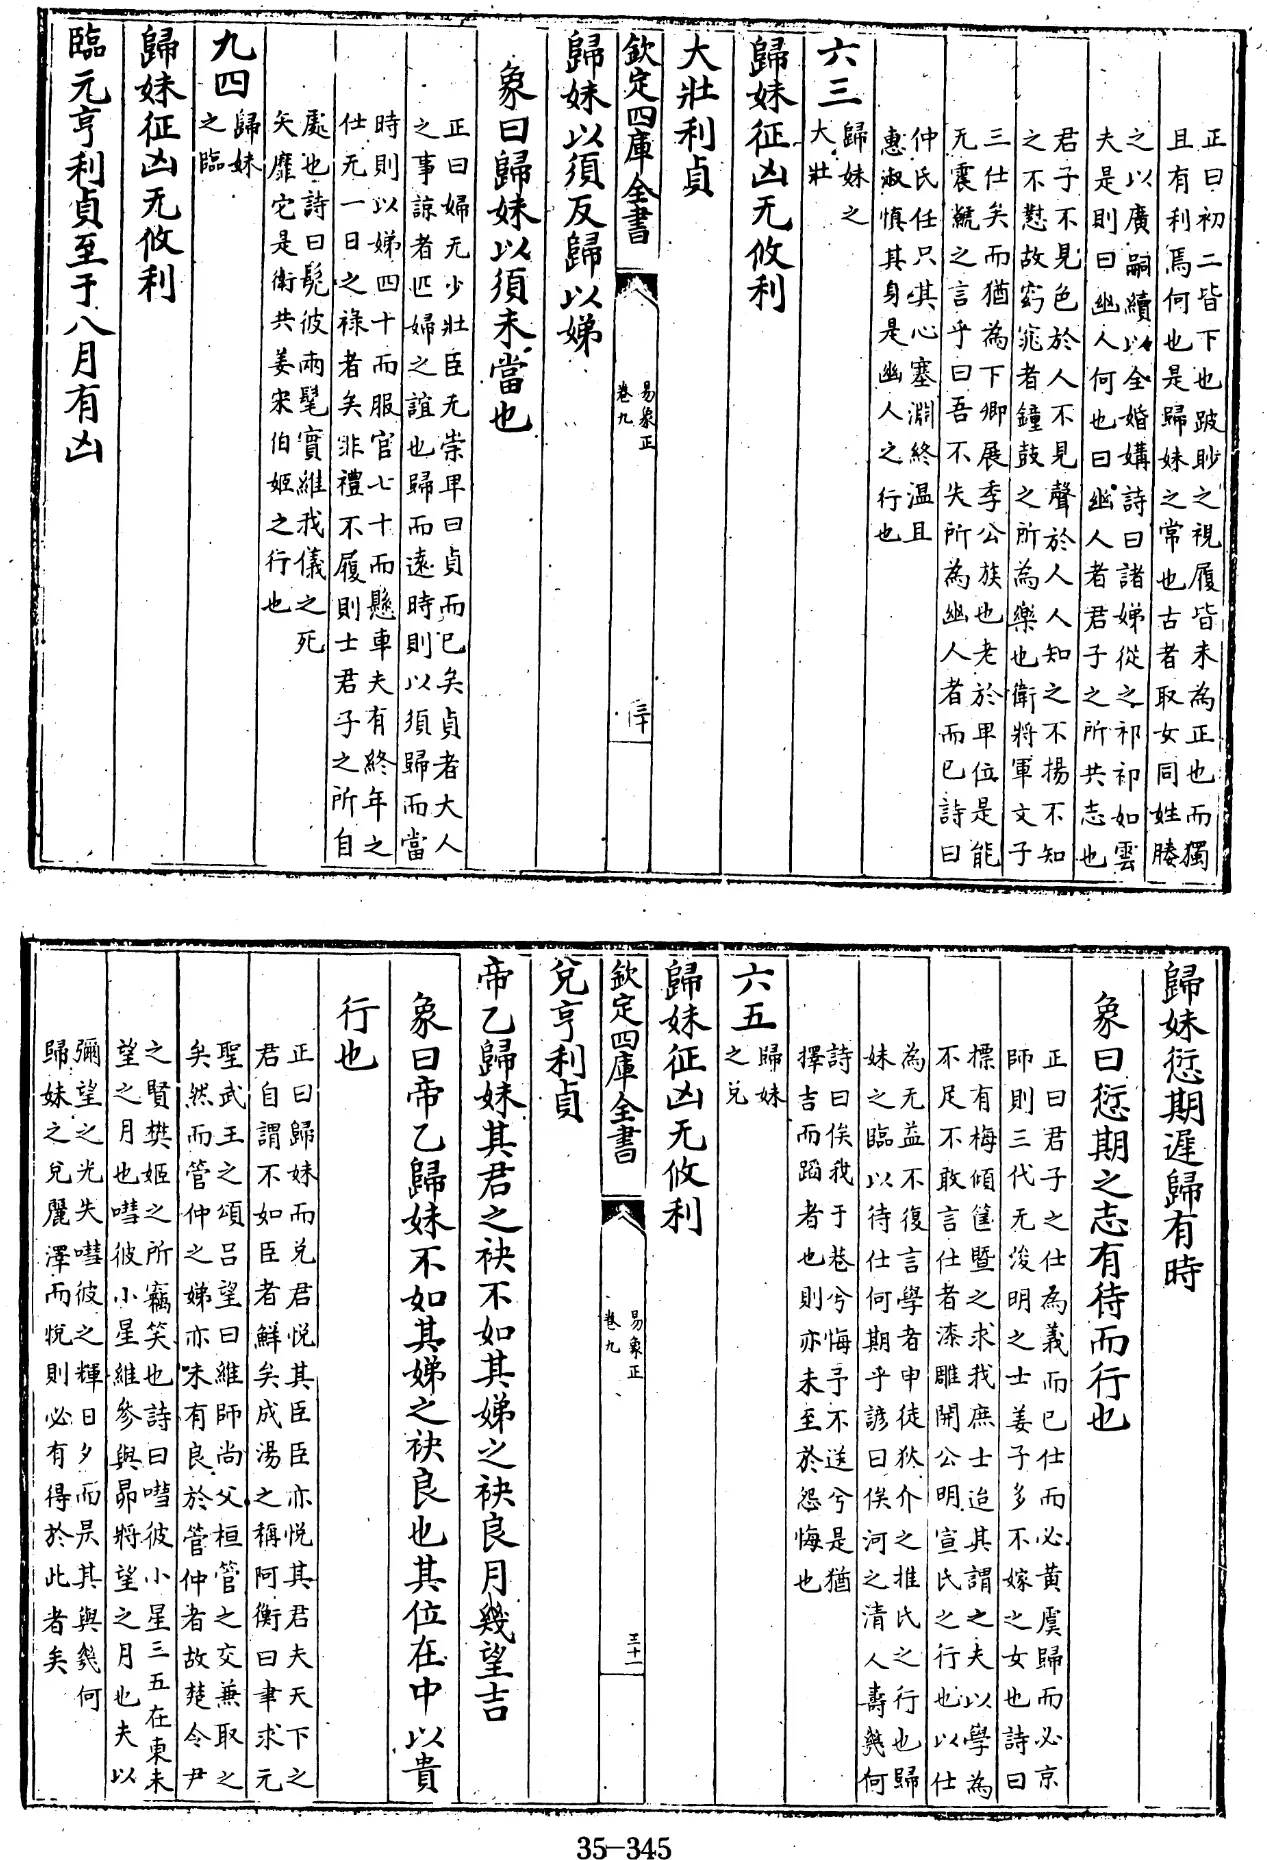 正曰初二皆下也跛眇之視履皆未為正也而獨
且有利焉何也是歸妹之常也古者取女同姓媵
之以廣嗣續以全婚媾詩曰諸娣從之祁祁如雲
夫是則曰幽人何也曰幽人者君子之所共志也
君子不見色於人不見聲於人人知之不揚不知
之不懟故窈窕者鐘鼓之所為樂也衛將軍文子
三仕矣而猶為下卿展季公族也老於卑位是能
无震虩之言乎曰吾不失所為幽人者而已詩曰
仲氏任只其心塞淵終温且
惠淑慎其身是幽人之行也
六三
歸妹之
大壯
歸妹征凶无攸利
大壯利貞
欽定四庫全書
易象正
卷九
三十
歸妹以須反歸以娣
象曰歸妹以須未當也
正曰婦无少壯臣无崇卑曰貞而已矣貞者大人
之事諒者匹婦之誼也歸而遠時則以須歸而當
時則以娣四十而服官七十而懸車夫有終年之
仕无一日之祿者矣非禮不履則士君子之所自
處也詩曰髧彼兩髦實維我儀之死
矢靡它是衛共姜宋伯姬之行也
九四
歸妹
之臨
歸妹征凶无攸利
臨元亨利貞至于八月有凶
歸妹愆期遲歸有時
象曰愆期之志有待而行也
正曰君子之仕為義而已仕而必黄虞歸而必京
師則三代无浚明之士姜子多不嫁之女也詩曰
摽有梅傾筐塈之求我庶士迨其謂之夫以學為
不足不敢言仕者漆雕開公明宣氏之行也以仕
為无益不復言學者申徒狄介之推氏之行也歸
妹之臨以待仕何期乎諺曰俟河之清人壽幾何
詩曰俟我于巷兮悔予不送兮是猶
擇吉而蹈者也則亦未至於怨悔也
六五
歸妹
之兌
歸妹征凶无攸利
欽定四庫全書
易象正
卷九
三十一
兌亨利貞
帝乙歸妹其君之袂不如其娣之袂良月幾望吉
象曰帝乙歸妹不如其娣之袂良也其位在中以貴
行也
正曰歸妹而兌君悦其臣臣亦悦其君夫天下之
君自謂不如臣者鮮矣成湯之稱阿衡曰聿求元
聖武王之頌呂望曰維師尚父桓管之交兼取之
矣然而管仲之娣亦未有良於管仲者故楚令尹
之賢樊姬之所竊笑也詩曰嘒彼小星三五在東未
望之月也嘒彼小星維參與昴將望之月也夫以
彌望之光失嘒彼之輝日夕而昃其與幾何
歸妹之兌麗澤而悅則必有得於此者矣
35-345